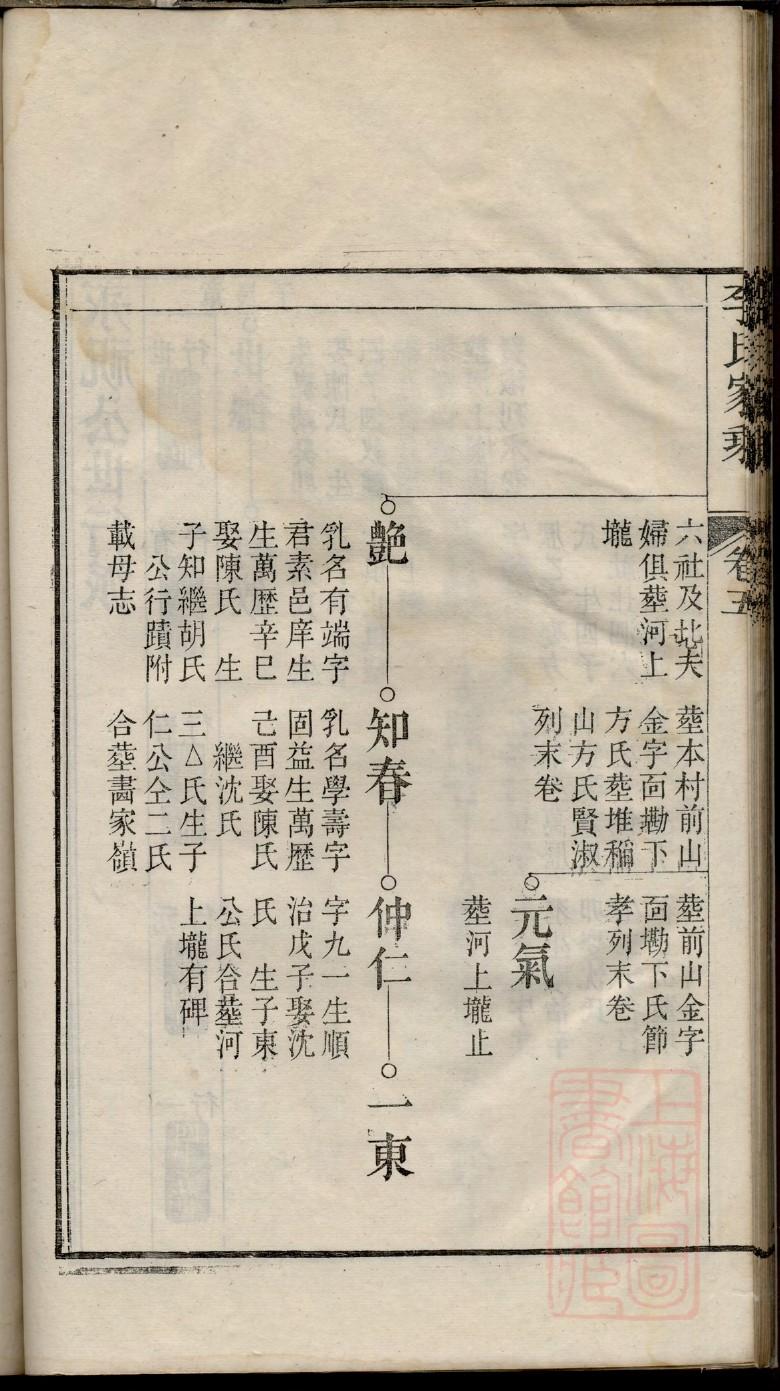 李氏家乘
卷五
六社及北夫
婦俱塟河上
壠
塟本村前山
金字面墈下
方氏塟堆稨
山方氏賢淑
列末卷
塟前山金字
面墈下氏節
孝列末卷
元氣
塟河上壠止
艷
乳名有端字
君素邑庠生
生萬歷辛巳
娶陳氏 生
子知繼胡氏
公行蹟附
載母志
知春
乳名學壽字
固益生萬歷
己酉娶陳氏
繼沈氏
三△氏生子
仁公仝二氏
合塟畵家嶺
仲仁
字九一生順
治戊子娶沈
氏 生子東
公氏合塟河
上壠有碑
一東
上海圖
書館藏